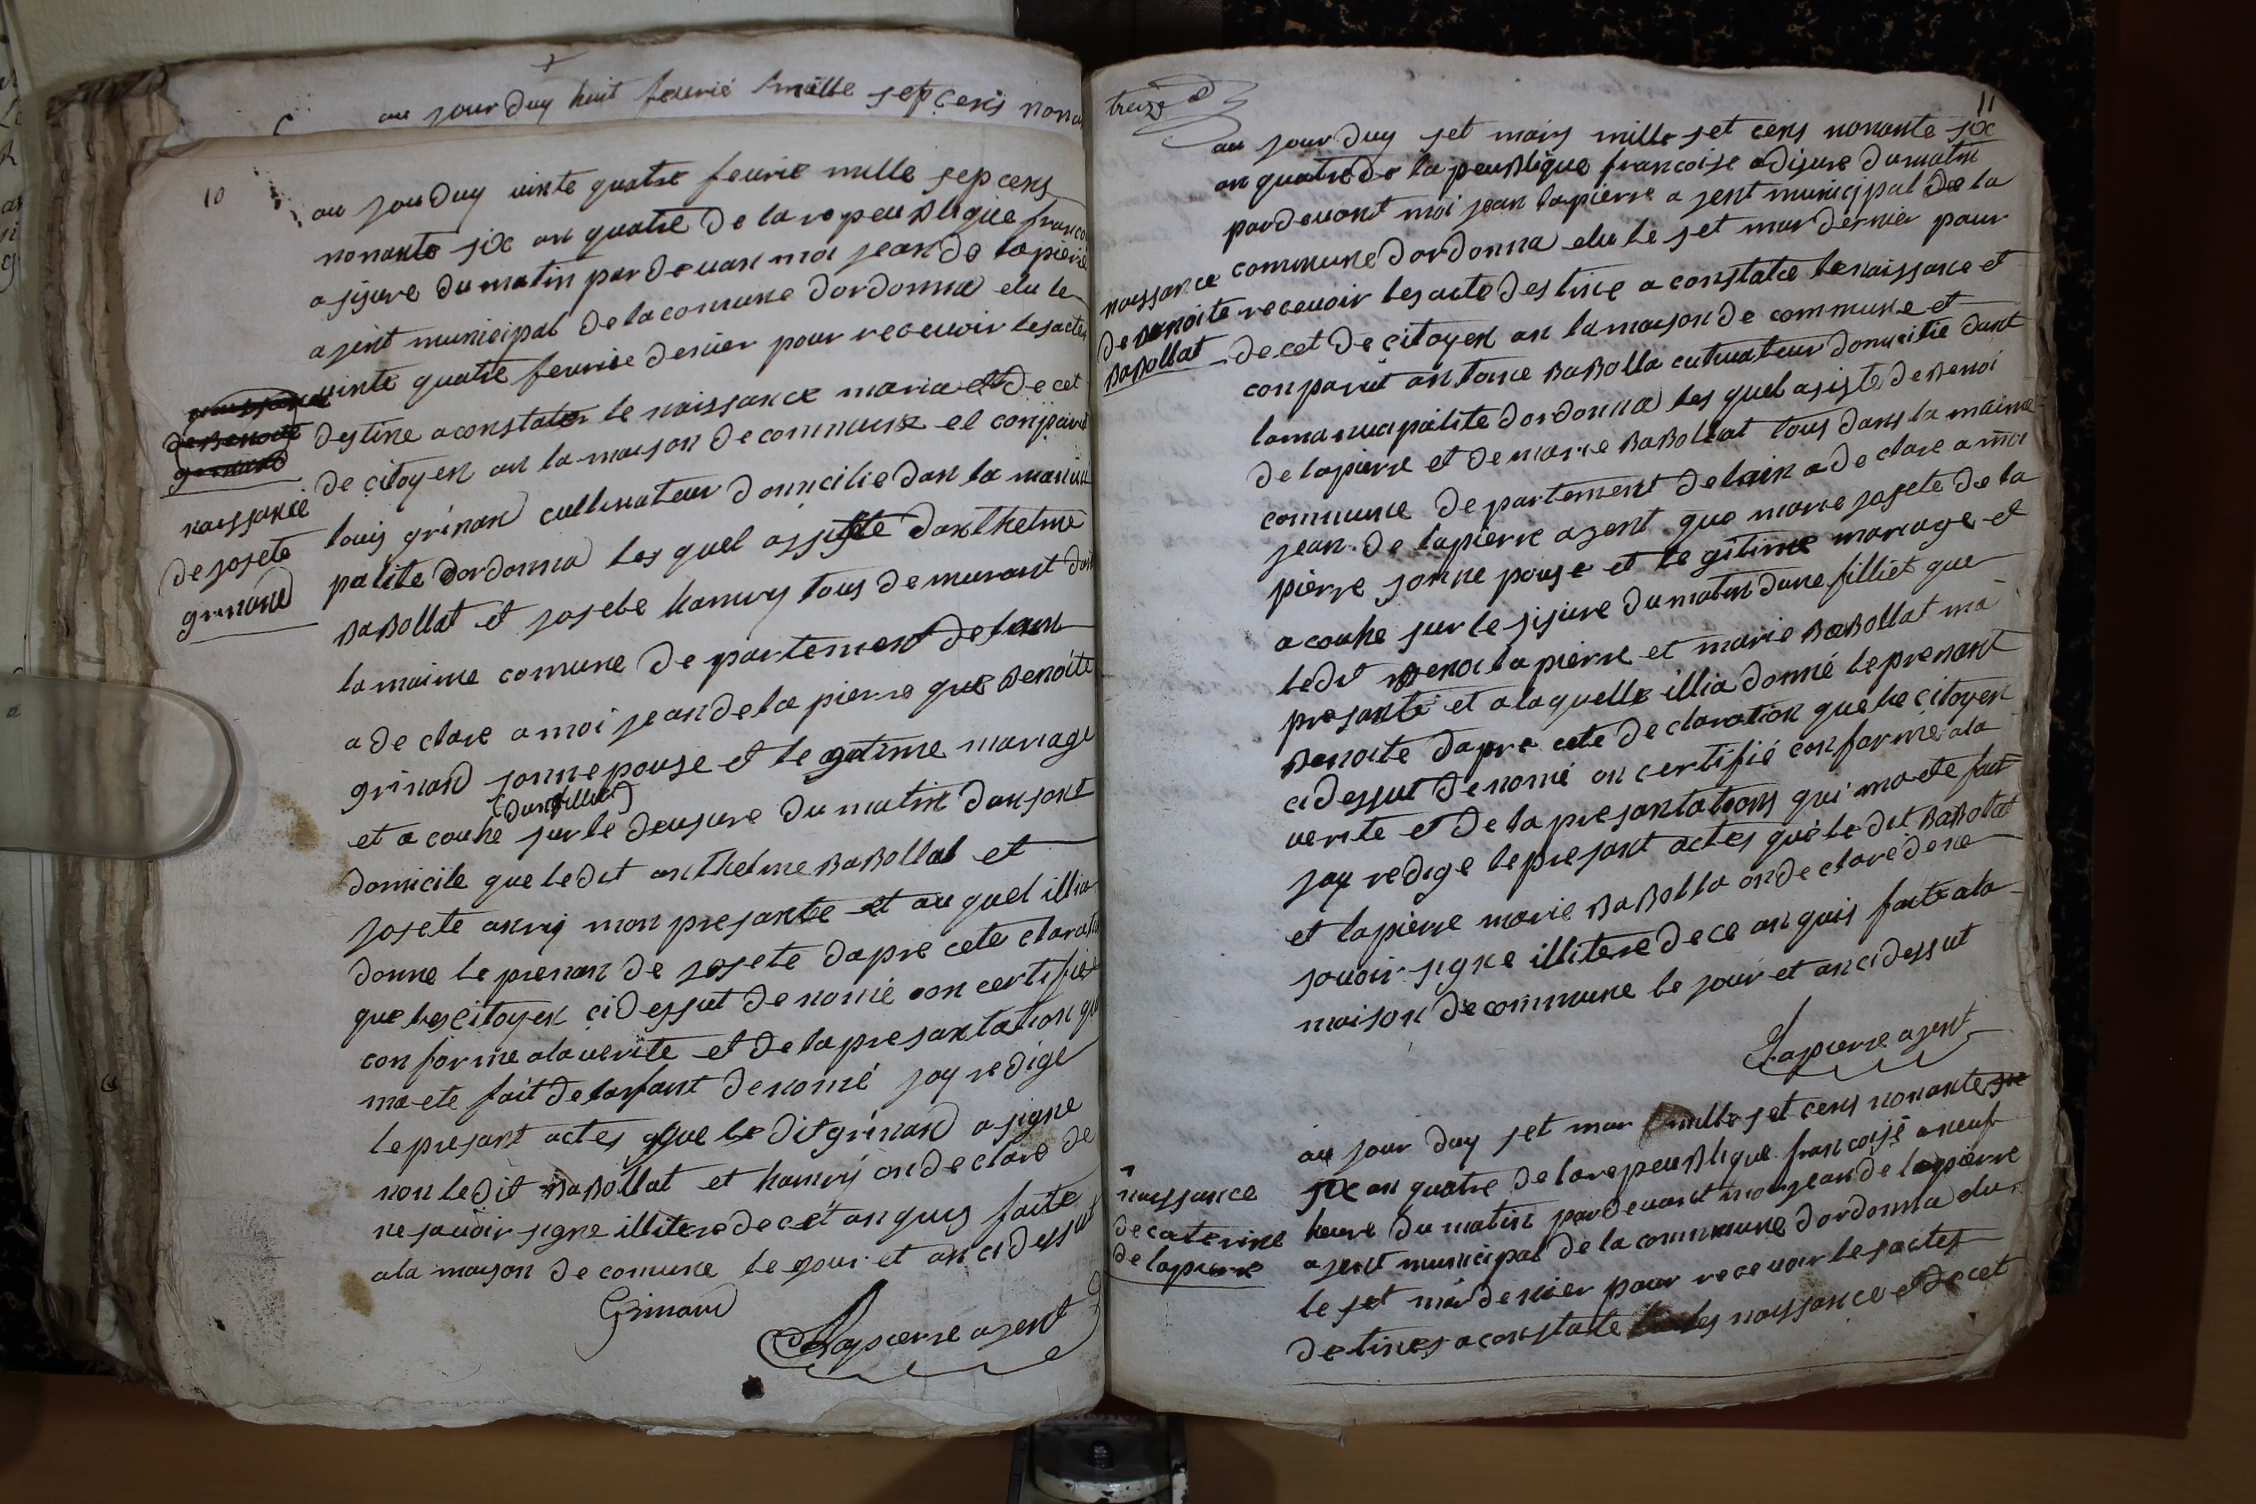 au jour duy huit feurié mille sep cens nonan
10
au jou duy vinte quatre feurie mille sep cens
nonante six an quatre de la repeublique franco
a sijure du matin par devan moi jean de lapierre
ajent municipal de la comune dordonna elu le
vinte quatre feurie denier pour recevoir les actes
destine a constater le naissance maria et de cet
de citoyen an la maison de commune et conparut
louis grinand cultivateur domicilie dan la manici
palite dordonna les quel assiste danthelme
BaBollat et josete hanrry tous demurant dans
la maime comune departement de lain
a declare a moi jean de la pierre que Benoite
grinand sonnepouse et legitime mariage
(dunfilliet)
et a couhe sur le deusure du matin dansont
domicile que ledit anthelme BaBollat et
josete anrry mon presante et au quel illia
donne le prenon de josete dapre cete claration
que les citoyen cidessut denomé on certifié
conforme ala verite et de la presantation qui
ma ete fait de lanfant denomé jay redige
le presant actes que le dit grinand a signe
non ledit BaBollat et hanrry on declare de
ne savoir signe illitere de cet anquis faite
ala maison de comune le jour et an ci dessut
Grinand
Delapierre agent
naissance
de Benoite
grinand
naissance
de josete
grinand
treize
11
au jour duy set mars mille set cens nonante six
an quatre de la peublique francoise a disure du matin
pardevant moi jean lapierre ajent municipal de la
commune dordonna elu le set mar dernier pour
recevoir les acte destine a constate le naissance et
de cet de citoyen an la maison de commune et
conparut antoine BaBolla cutivateur domicilie dant
la manucipalite dordonna les quel asiste de Benoi
de lapierre et de marie BaBollat tous dans la maime
commune departement de lain a declare a moi
jean de lapierre agent que marie josete de la
pierre sonne pouse et legitime mariage et
a couhe sur le sijure du matin dune filliet que
ledit Benoi lapierre et marie BaBollat ma
presanté et a laquelle illia donné le prenont
Benoite dapre cete declaration que le citoyen
cidessut denomé on certifié conforme ala
verite et de la presantations qui ma ete fait
jay redige le presant actes que le dit BaBollat
et lapierre marie BaBolla on declaré de ne
savoir signe illitere de ce anquis faite ala
maison de commune le jour et an cidessut
Lapierre agent
naissance
de Benoite
BaBollat
au jour duy set mar mille set cens nonante six
six an quatre de la repeublique francoise a neuf
heure du matin pardevant moi jean de lapierre
ajent municipal de la commune dordonna elu
le set mar denier pour recevoir les actes
detines a constate les naissance et de cet
naissance
de caterine
de lapierre